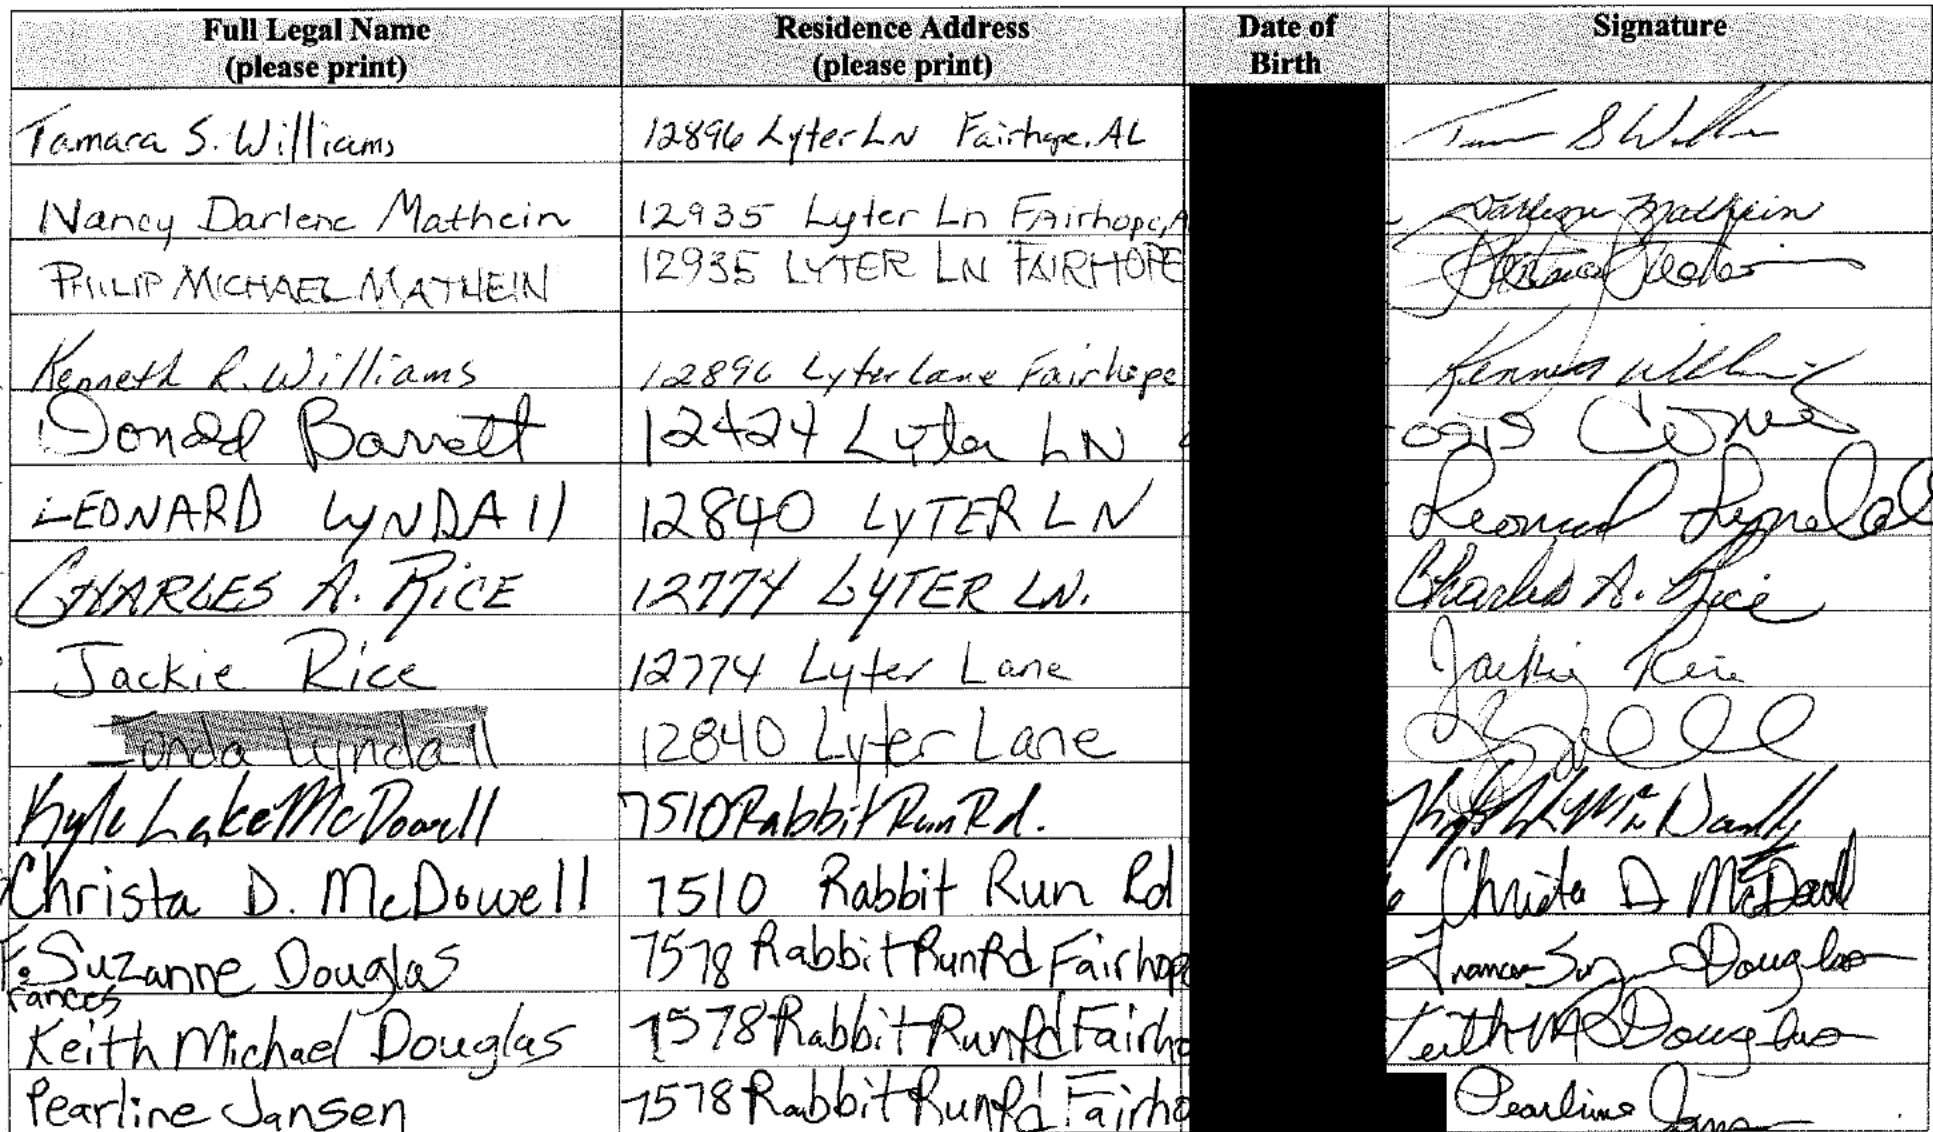 Full Legal Name Residence Address Date of Signature
(please print) (please print) Birth
Tamara S. Williams 12896 Lyter LN Fairhope, AL
Nancy Darlene Mathein 12935 Lyter Ln Fairhope, A Darlene Mathein
PHILIP MICHAEL MATHEIN 12935 LYTER LN FAIRHOPE
Kenneth R. Williams 12896 Lyter Lane Fairhope Kenneth
Donald Barrett 12424 Lyter LN
LEONARD LYNDAll 12840 LYTER LN Leonard Lyndall
CHARLES A. RICE 12774 LYTER LN. Charles A. Rice
Jackie Rice 12774 Lyter Lane Jackie Rice
Lyndall 12840 Lyter Lane
Kyle Lake McDowell 7510 Rabbit Run Rd.
Christa D. McDowell 7510 Rabbit Run Rd Christa D McDowell
F. Suzanne Douglas 7578 Rabbit Run Rd Fairhope Frances Douglas
rances
Keith Michael Douglas 7578 Rabbit Run Rd Fairho Keith M Douglas
Pearline Jansen 7578 Rabbit Run Rd Fairho Pearline Jansen